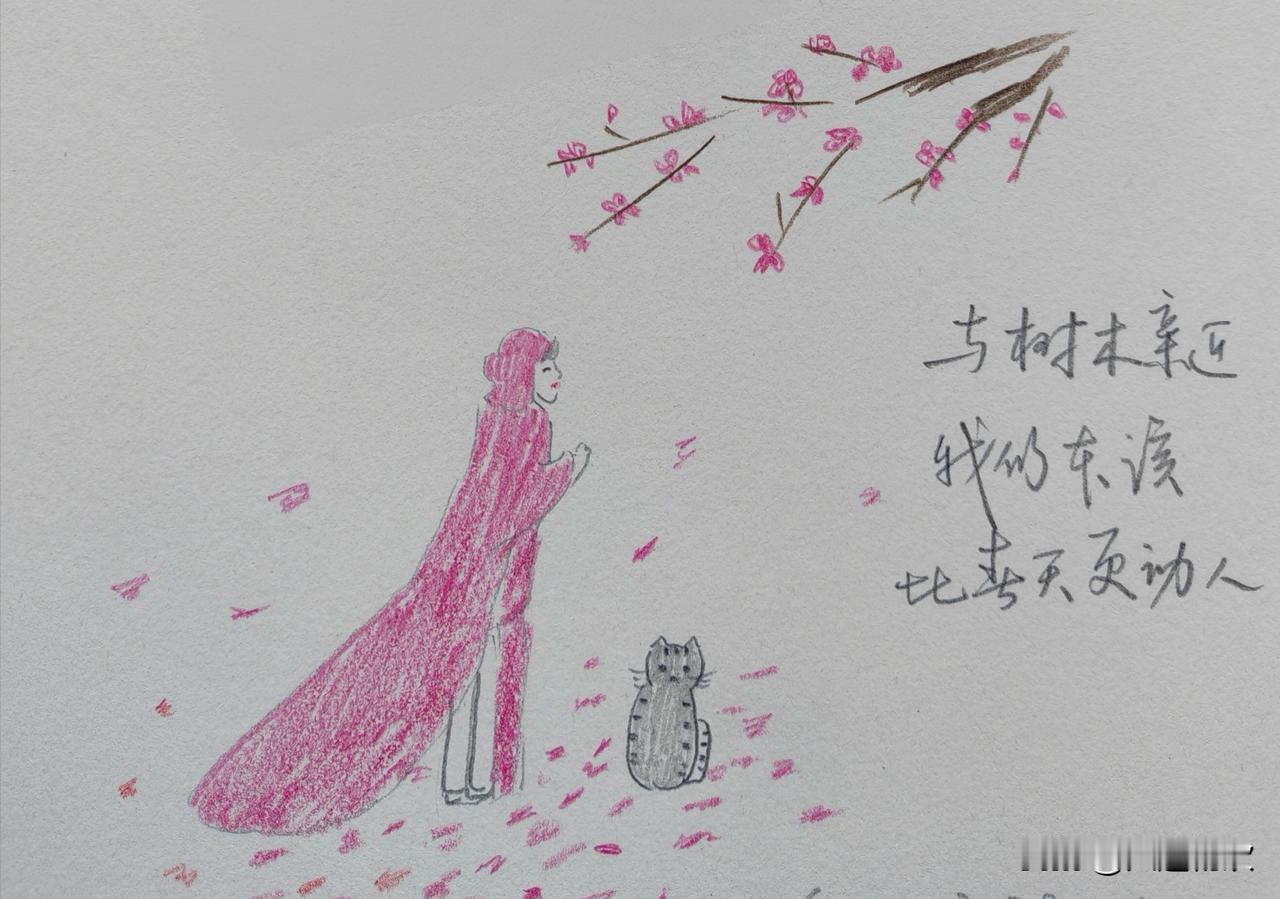 与树木亲近
我的东诶
比春天更动人